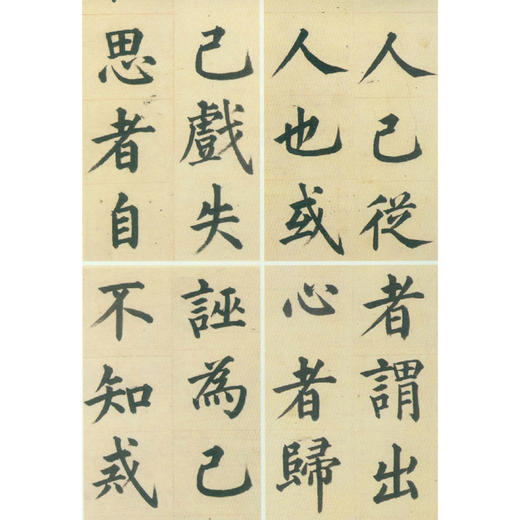 人己從
人也或
者謂出
心者歸
己戲失
思者自
誣為己
不知戒